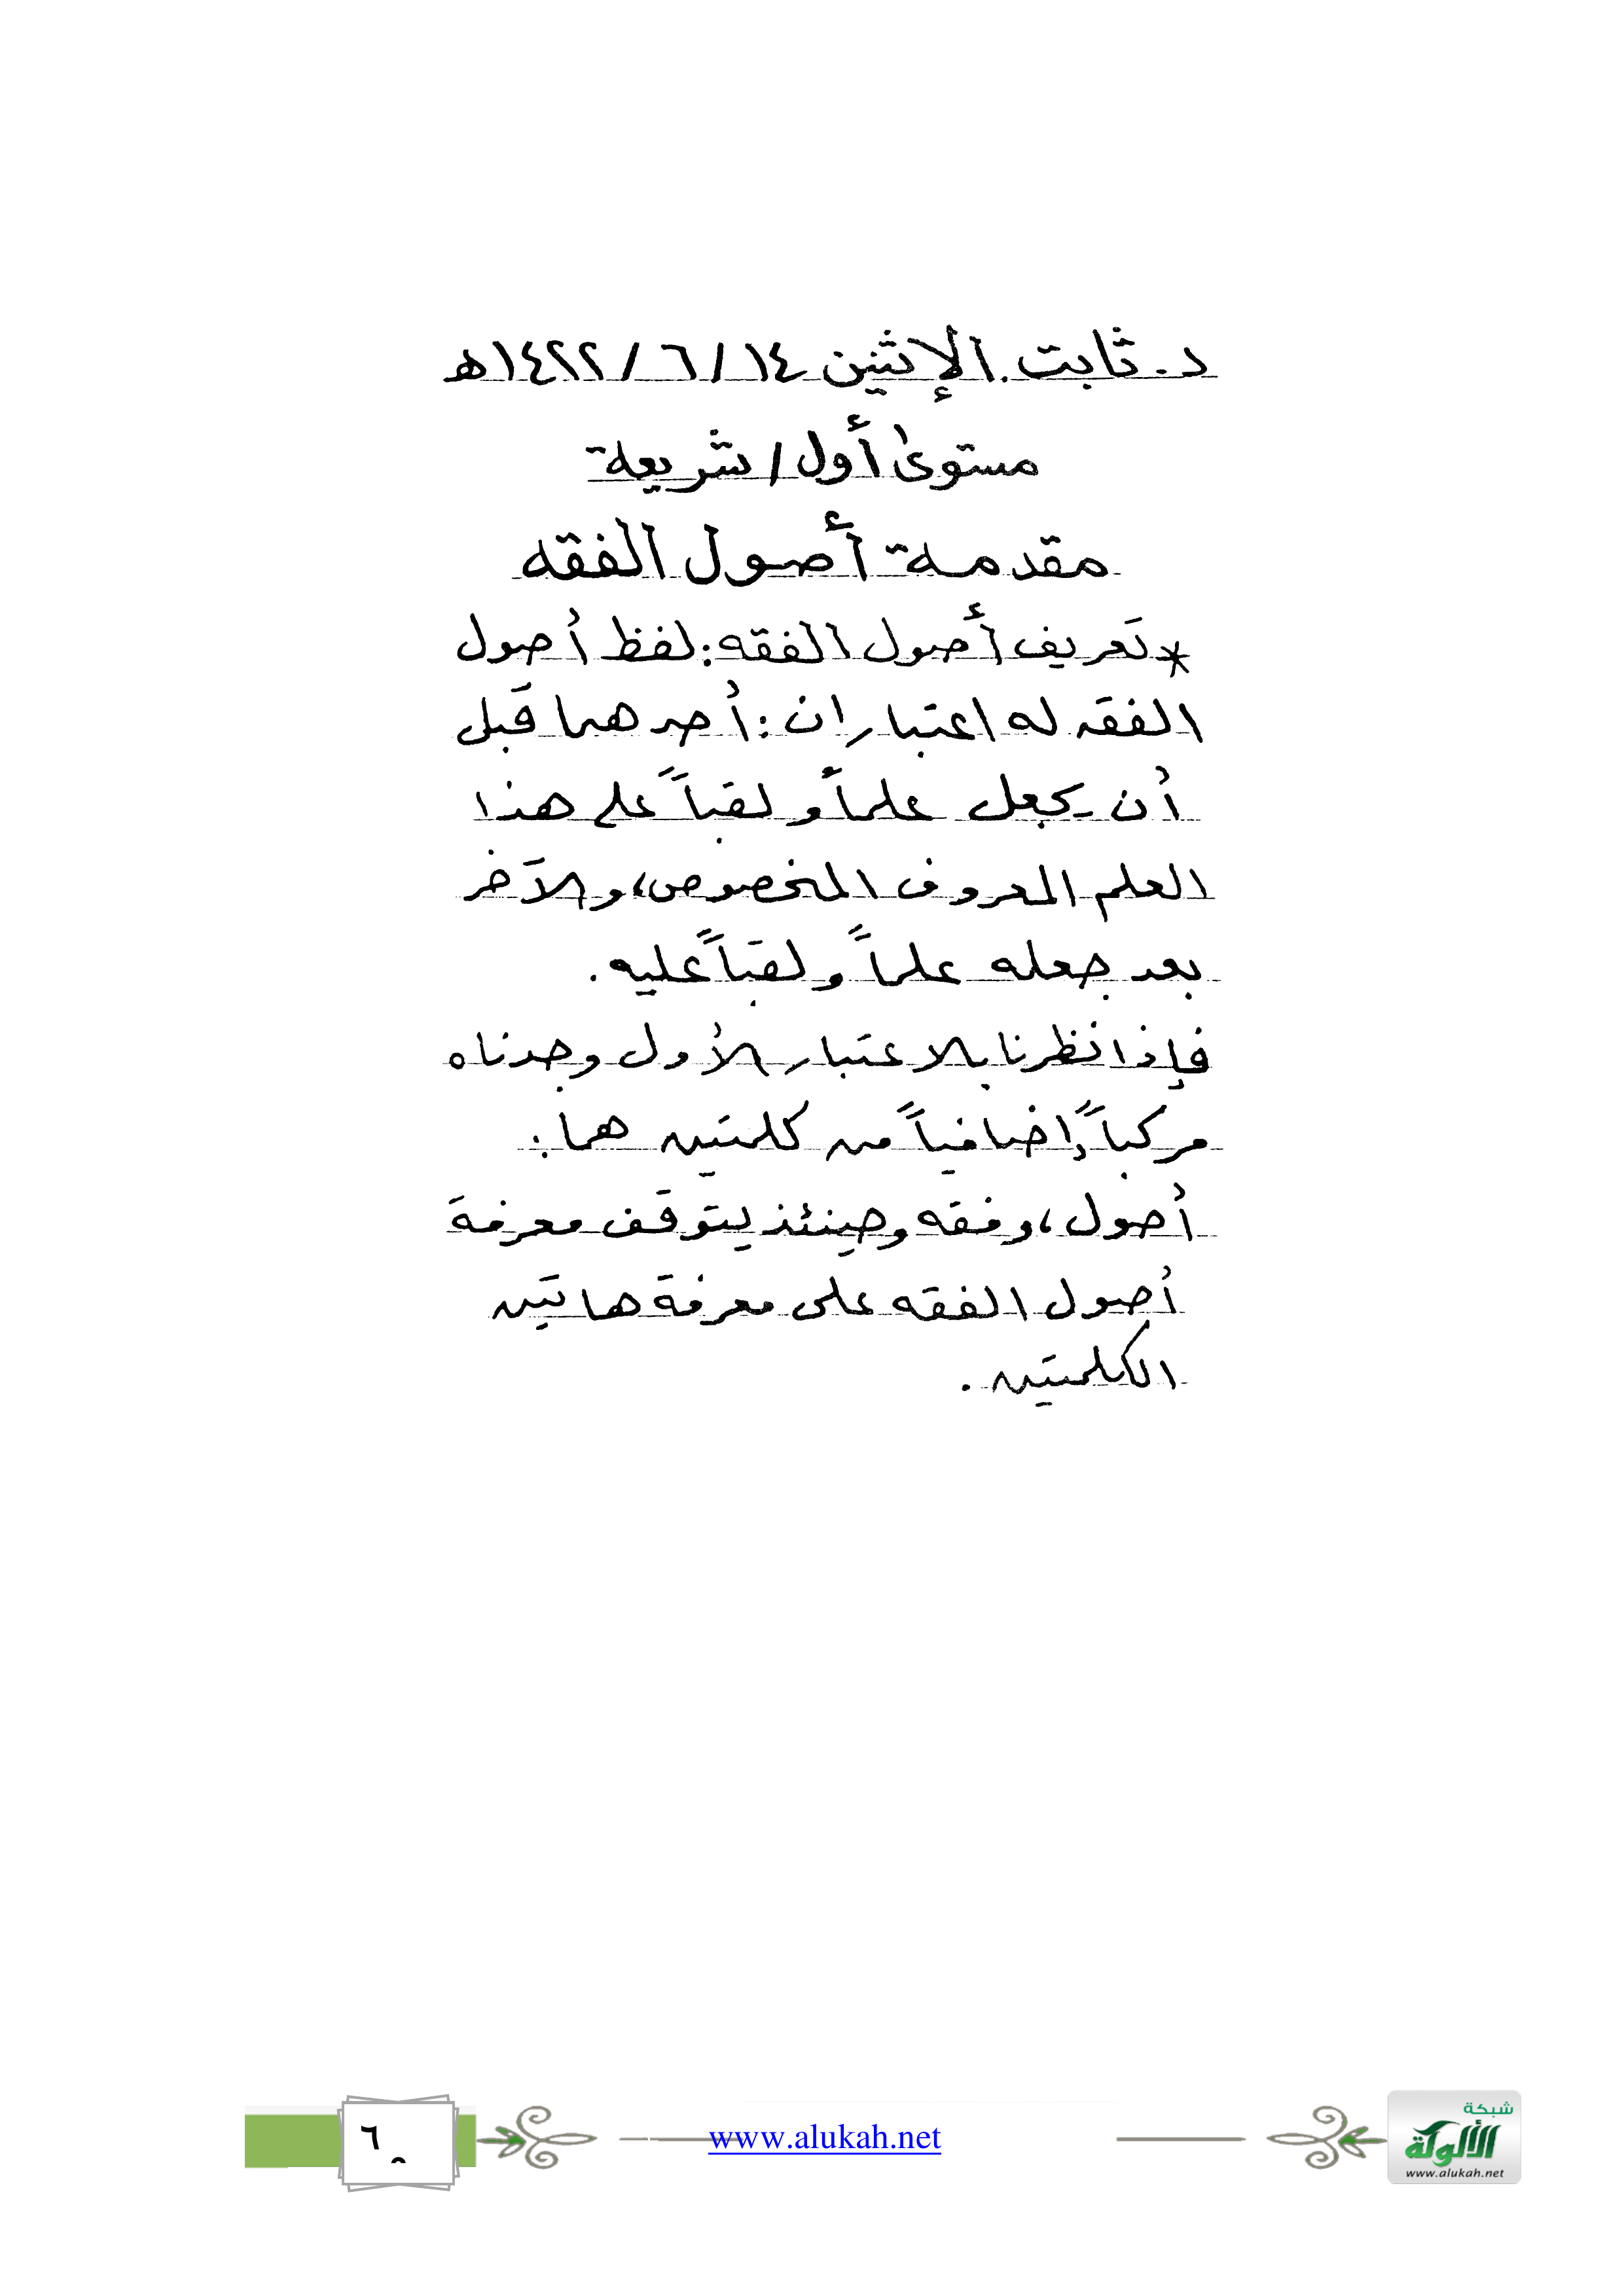 د. ثابت. الإثنين ١٤ / ٦ / ١٤٢٢هـ
مستوىٰ أول / شريعة
مقدمة أصول الفقه
* تعريف أصول الفقه: لفظ أصول
الفقه له اعتباران: أحدهما قبل
أن يجعل علماً ولقباً على هذا
العلم المعروف المخصوص، والآخر
بعد جعله علماً ولقباً عليه.
فإذا نظرنا بالاعتبار الأول وجدناه
مركباً إضافياً من كلمتين هما:
أصول، وفقه وحينئذ يتوقف معرفة
أصول الفقه على معرفة هاتين
الكلمتين.
٦
www.alukah.net
شبكة
الألوكة
www.alukah.net